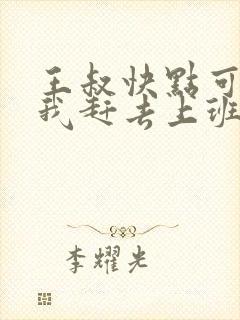 王叔快點可
我赶去上班
李耀光